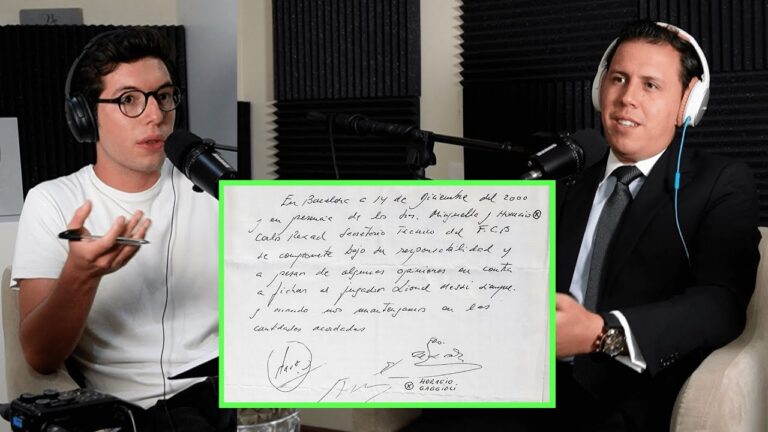 En Barcelona a 14 de Diciembre del 2000
y en presencia de los Sres. Minguella y Horacio
Carles Rexach Secretario Tecnico del F.C.B
se compromete bajo su responsabilidad y
a pesar de algunas opiniones en contra
a fichar al jugador Lionel Messi siempre
y cuando nos mantengamos en las
cantidades acordadas
HORACIO
GAGGIOLI